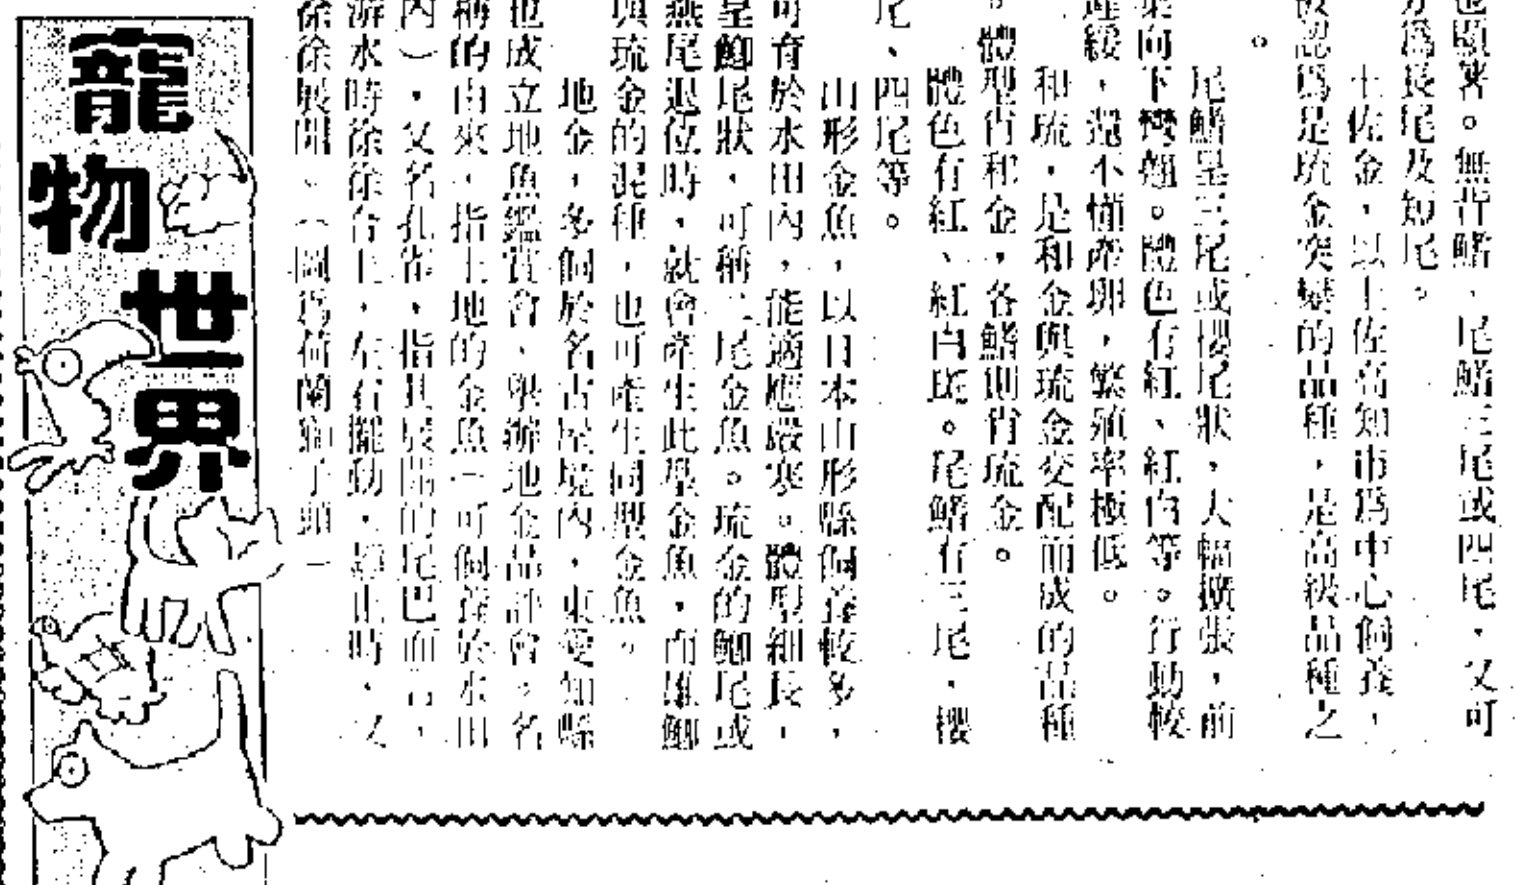 也顯著。無背鰭、尾鰭三尾或四尾,又可
分爲長尾及短尾。
土佐金,以土佐高知市爲中心飼養,
被認爲是琉金突變的品種,是高級品種之
。
尾鰭呈三尾或櫻尾狀,大幅擴張,前
向下彎翹。體色有紅、紅白等。行動較
遲緩,還不懂產卵,繁殖率極低。
和琉,是和金與琉金交配而成的品種
。體型肖和金,各鰭則肖琉金。
體色有紅、紅白斑。尾鰭有三尾、櫻
尾、四尾等。
山形金魚,以日本山形縣飼養較多,
可育於水田內,能適應嚴寒。體型細長,
呈鯽尾狀,可稱二尾金魚。琉金的鯽尾或
燕尾退位時,就會產生此型金魚,而雄鯽
與琉金的混種,也可產生同型金魚。
地金,多飼於名古屋境內,東愛知縣
也成立地魚鑑賞會,舉辦地金品評會。名
稱的由來,指土地的金魚(可飼養於水田
內),又名孔雀,指其展開的尾巴而言,
游水時徐徐合上,左右擺動,靜止時,又
徐徐展開。(圖爲荷蘭獅子頭)
寵物世界